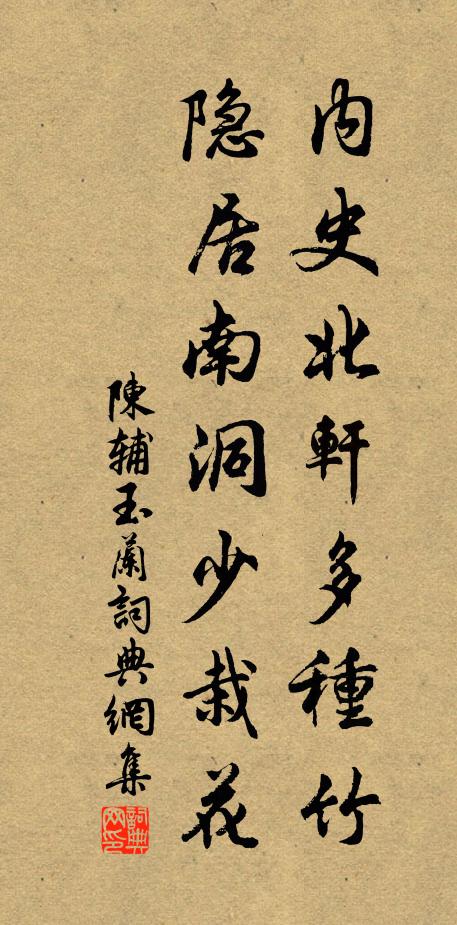 内史北軒多種竹
隐居南洞少栽花
陳辅玉蘭詞典網集
詞典网印